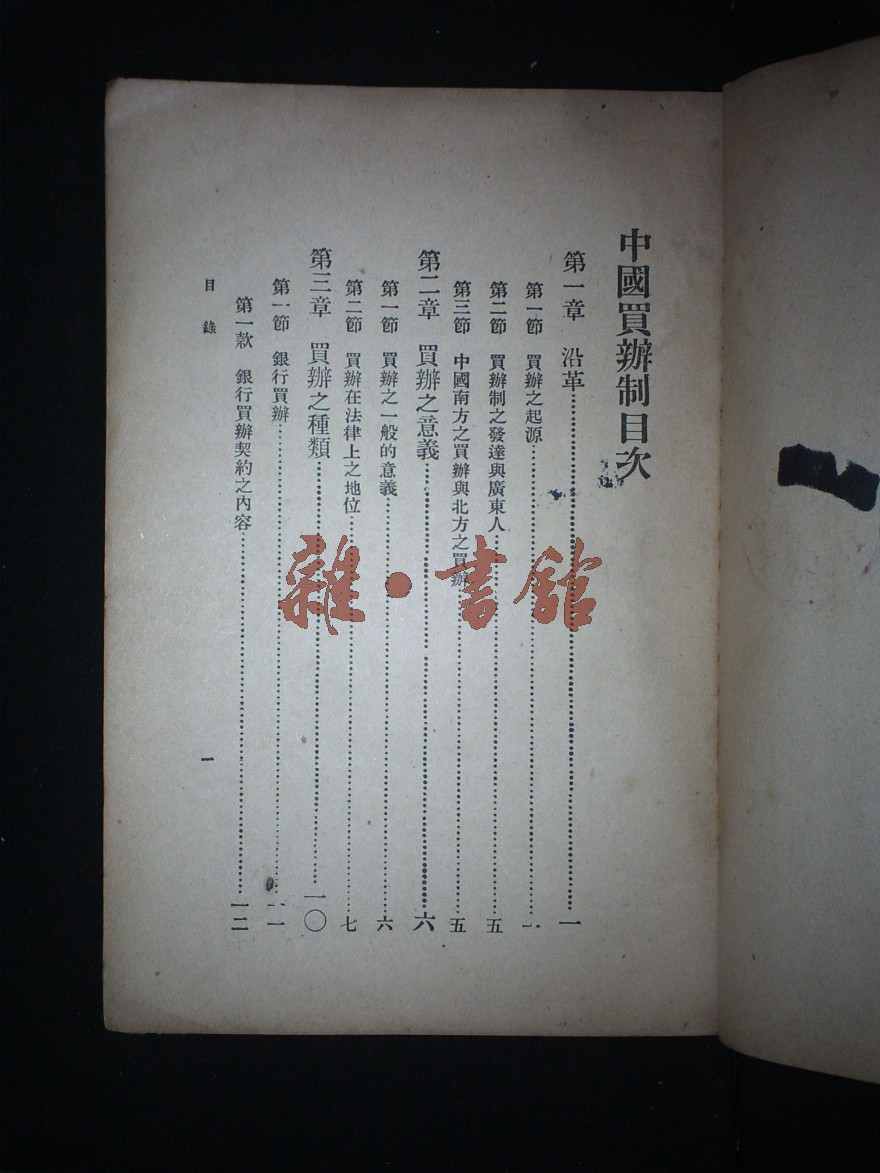 中國買辦制目次
第一章 沿革…………一
第一節 買辦之起源…………一
第二節 買辦制之發達與廣東人…………五
第三節 中國南方之買辦與北方之買辦…………五
第二章 買辦之意義…………六
第一節 買辦之一般的意義…………六
第二節 買辦在法律上之地位…………七
第三章 買辦之種類…………一〇
第一節 銀行買辦…………一一
第一款 銀行買辦契約之內容…………一二
目錄
一
雜·書館